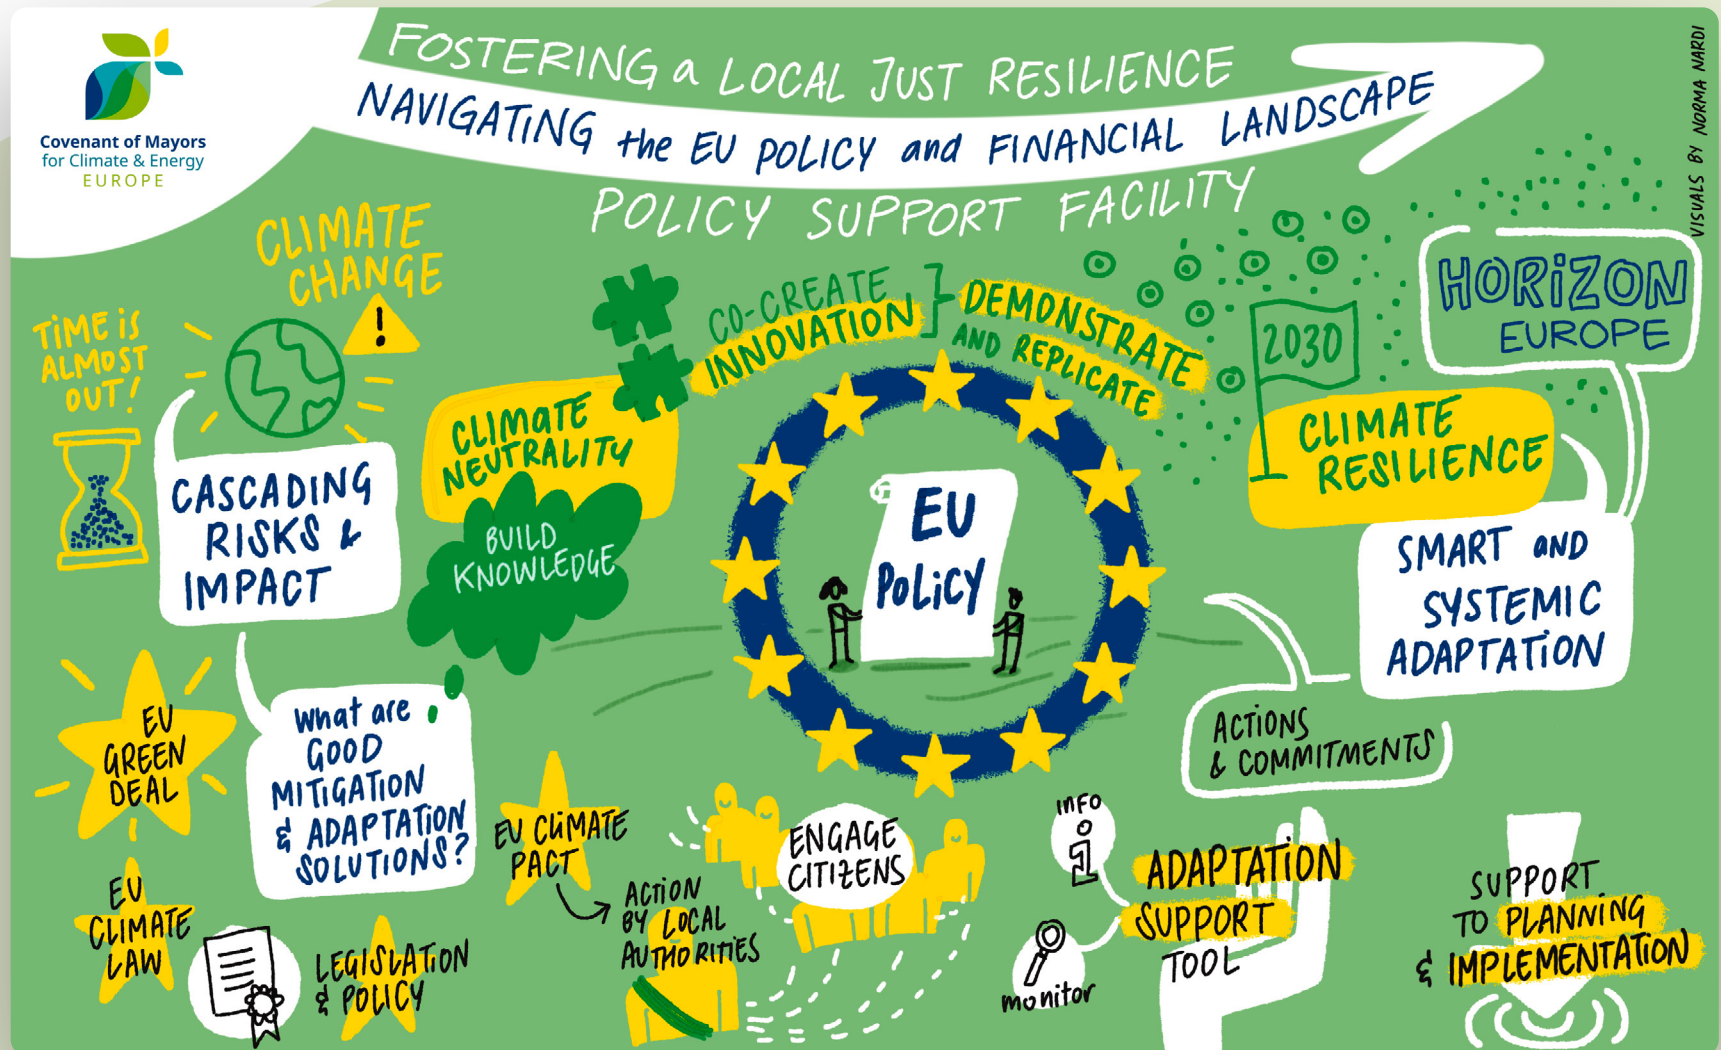 Covenant of Mayors
for Climate & Energy
EUROPE
FOSTERING a LOCAL JUST RESILIENCE
NAVIGATING the EU POLICY and FINANCIAL LANDSCAPE
POLICY SUPPORT FACILITY
VISUALS BY NORMA NARDI
CLIMATE
CHANGE
!
TIME IS
ALMOST
OUT!
CASCADING
RISKS &
IMPACT
CLIMATE
NEUTRALITY
BUILD
KNOWLEDGE
CO-CREATE
INNOVATION
DEMONSTRATE
AND REPLICATE
EU
POLICY
2030
CLIMATE
RESILIENCE
HORIZON
EUROPE
SMART AND
SYSTEMIC
ADAPTATION
ACTIONS
& COMMITMENTS
EU
GREEN
DEAL
What are
GOOD
MITIGATION
& ADAPTATION
SOLUTIONS?
EU
CLIMATE
LAW
LEGISLATION
& POLICY
EU CLIMATE
PACT
ACTION
BY LOCAL
AUTHORITIES
ENGAGE
CITIZENS
INFO
i
monitor
ADAPTATION
SUPPORT
TOOL
SUPPORT
TO PLANNING
& IMPLEMENTATION